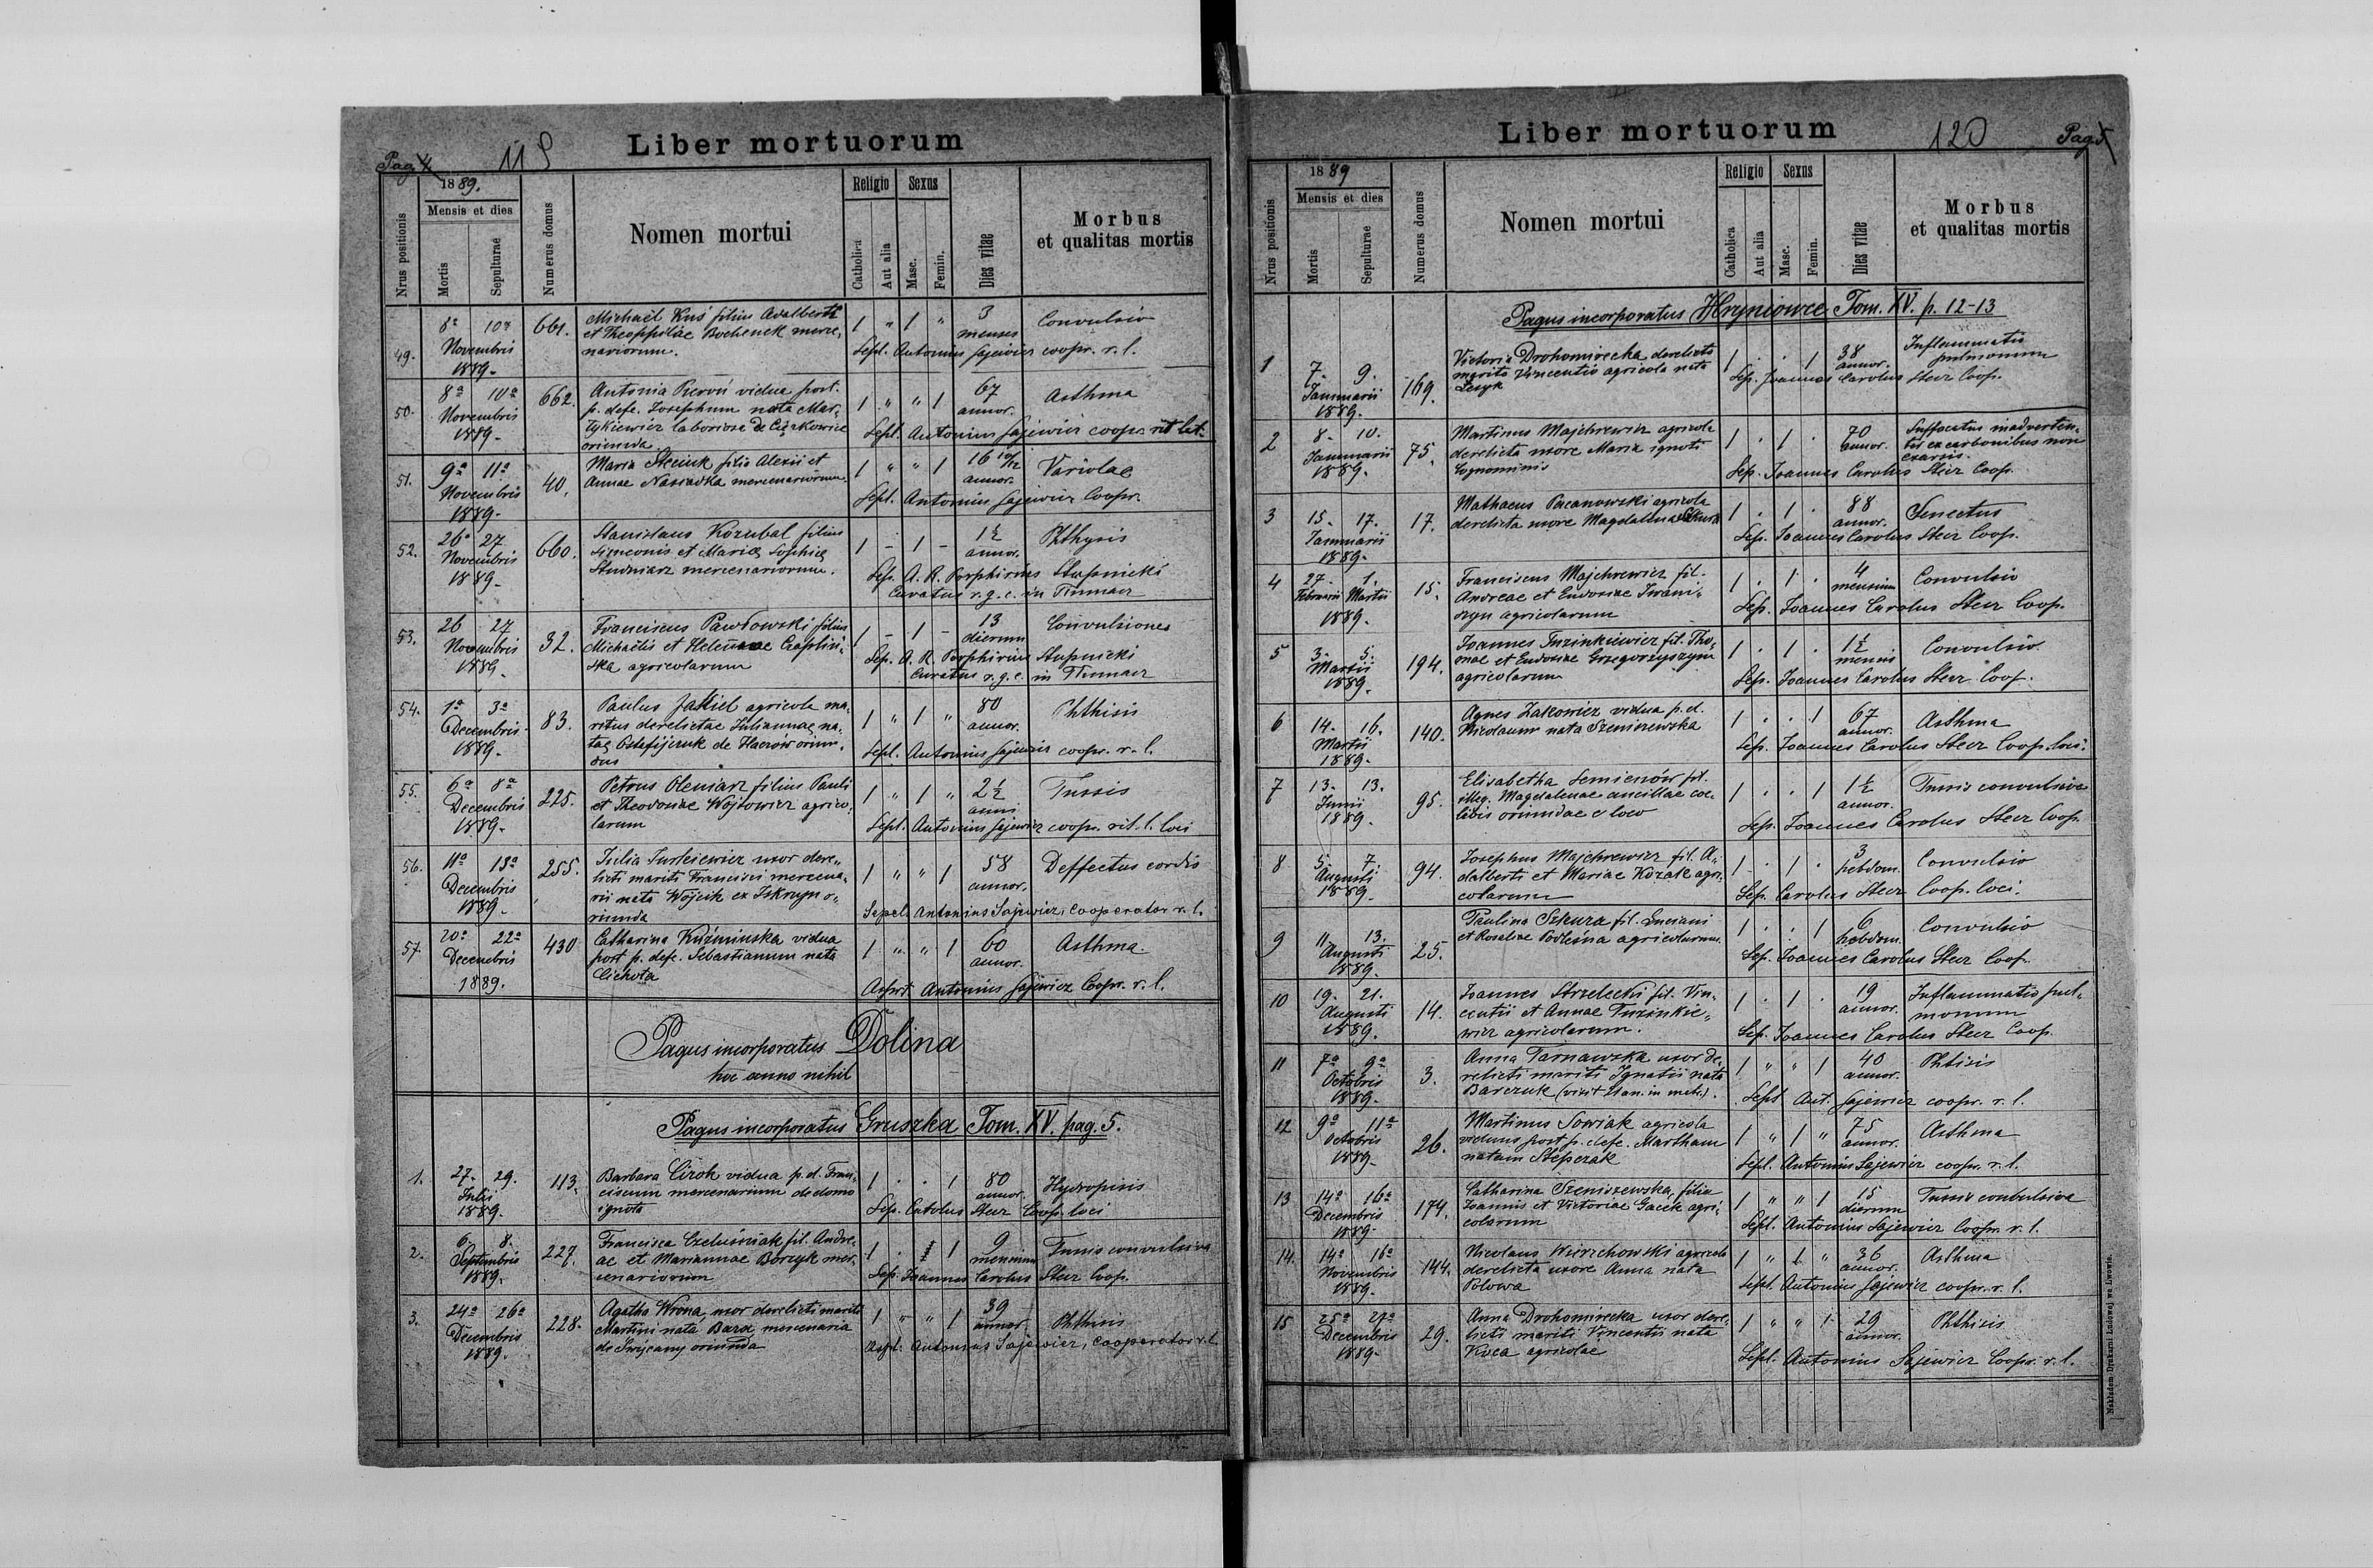 Liber mortuorum
Pag. 4
119
Nrus positionis
1889.
Mensis et dies
Mortis
Sepulturae
Numerus domus
Nomen mortui
Religio
Catholica
Aut alia
Sexus
Masc.
Femin.
Dies vitae
Morbus
et qualitas mortis
49.
8a 10a
Novembris
1889.
661.
Michaël Kuś filius Adalberti
et Theophilae Bochenek merce„
nariorum.
1 „ 1 „
3
menses
Convulsio
Sepl. Antonius Sajewicz coopr. r. l.
50.
8a 10a
Novembris
1889.
662.
Antonia vidua post.
p. defc. Josephum nata Mar„
tykiewicz laboriosa de Ciężkowice
oriunda.
1 „ „ 1
67
annor.
Asthma
Sepl. Antonius Sajewicz coopr. rit lat.
51.
9a 11a
Novembris
1889.
40.
Maria Steciuk filia Alexii et
Annae Nassadka mercenariorum.
1 „ „ 1
16 10/12
annor.
Variolae
Sepl. Antonius Sajewicz Coopr.
52.
26a 27
Novembris
1889.
660.
Stanislaus Kozubal filius
Simeonis et Maria Sophia
Studniarz mercenariorum.
1 - 1 -
1½
annor.
Phthysis
Sep. A. R. Porphirius Stupnicki
Curatus r. g. c. in Tłumacz
53.
26 27
Novembris
1889.
32.
Franciscus Pawłowski filius
Michaëlis et Helenae Czaplin„
ska agricolarum
1 - 1 -
13
dierum
Convulsiones
Sep. A. R. Porphirius Stupnicki
Curatus r. g. c. in Tłumacz
54.
1a 3a
Decembris
1889.
83.
Paulus agricola ma„
ritus derelictae Juliannae na„
tae Ostafijczuk de oriun„
dus
1 „ 1 „
80
annor.
Phthisis
Sepl. Antonius Sajewicz coopr. r. l.
55.
6a 8a
Decembris
1889.
225.
Petrus Oleniarz filius Pauli
et Theodosiae Wojtowicz agrico„
larum
1 „ 1 „
2½
anni
Tussis
Sepl. Antonius Sajewicz coopr. rit. l. loci
56.
11a 13a
Decembris
1889.
255.
Julia Turkiewicz uxor dere„
licti mariti Francisci mercena„
rii nata Wójcik ex o„
riunda
1 „ „ 1
58
annor.
Deffectus cordis
Sepel. Antonius Sajewicz, Cooperator r. l.
57.
20a 22a
Decembris
1889.
430
Catharina Kuźmińska vidua
post p. defc. Sebastianum nata
Cichota
1 „ „ 1
60
annor.
Asthma.
Asprt. Antonius Sajewicz Coopr. r. l.
Pagus incorporatus Dolina
hoc anno nihil
Pagus incorporatus Gruszka Tom. XV. pag. 5.
1.
27. 29.
Julii
1889.
113.
Barbara Cirok vidua p. d. Fran„
ciscum mercenarium de domo
ignota
1 . . 1
80
annor.
Hydropisis
Sep. Carolus Steer Coop. loci
2.
6. 8.
Septembris
1889.
227.
Francisca Czeluśniak fil. Andre„
ae et Mariannae Borczyk mer„
cenariorum
1 . 1
9
mensium
Tussis convulsiva
Sep. Joannes Carolus Steer Coop.
3.
24a 26a
Decembris
1889.
228.
Agatha Wrona, uxor derelicti mariti
Martini nata Baza mercenaria
de Święcany oriunda
1 „ „ 1
39
annor.
Phthisis
Aspt. Antonius Sajewicz, Cooperator r. l.
Liber mortuorum
120
Pag. 5
Nrus positionis
1889
Mensis et dies
Mortis
Sepulturae
Numerus domus
Nomen mortui
Religio
Catholica
Aut alia
Sexus
Masc.
Femin.
Dies vitae
Morbus
et qualitas mortis
Pagus incorporatus Hryniowce Tom. XV. p. 12-13
1
7. 9.
Januarii
1889.
169.
Victoria Drohomirecka derelicto
marito Vincentio agricola nata
Lesyk
1 . . 1
38
annor.
Inflammatio
pulmonum
Sep. Joannes Carolus Steer Coop.
2
8. 10.
Januarii
1889.
75.
Martinus Majchrewicz agricola
derelicta uxore Maria ignoti
Cognominis
1 . 1 .
70
annor.
Suffocatus inadverten„
ter ex carbonibus non
exarsis.
Sep. Joannes Carolus Steer Coop.
3
15. 17.
Januarii
1889.
17.
Mathaeus Pacanowski agricola
derelicta uxore Magdalena
1 . 1 .
88
annor.
Senectus
Sep. Joannes Carolus Steer Coop.
4
27. 1.
Februarii Martii
1889.
15.
Franciscus Majchrewicz fil.
Andreae et Eudosiae Iwani„
szyn agricolarum
1 . 1 .
4
mensium
Convulsio
Sep. Joannes Carolus Steer Coop.
5
3. 5.
Martii
1889.
194.
Joannes Tuzinkiewicz fil. Tho„
mae et Eudosiae Grzegorzyszyn
agricolarum
1 . 1 .
1½
mensis
Convulsio.
Sep. Joannes Carolus Steer Coop.
6
14. 16.
Martii
1889.
140.
Agnes Żakowicz vidua p. d.
Nicolaum nata Szeniszewska
1 . . 1
67
annor.
Asthma
Sep. Joannes Carolus Steer Coop. loci.
7
13. 13.
Junii
1889.
95.
Elisabetha Semienów fil.
illeg. Magdalenae ancillae coe„
libis oriundae e loco
1 . . 1
1½
annor.
Tussis convulsiva
Sep. Joannes Carolus Steer Coop.
8
5. 7.
Augusti
1889.
94.
Josephus Majchrewicz fil. A„
dalberti et Mariae Kozak agri„
colarum
1 . 1 .
3
hebdom.
Convulsio
Sep. Carolus Steer Coop. loci.
9
11. 13.
Augusti
1889.
25.
Paulina Szkura fil. Luciani
et Rosaliae Podleśna agricolarum.
1 . . 1
6
hebdom.
Convulsio
Sep. Joannes Carolus Steer Coop.
10
19. 21.
Augusti
1889.
14.
Joannes Strzelecki fil. Vin„
centii et Annae Tuzinkie„
wicz agricolarum.
1 . 1 .
19
annor.
Inflammatio pul„
monum
Sep. Joannes Carolus Steer Coop.
11
7a 9a
Octobris
1889.
3.
Anna Tarnawska uxor de„
relicti mariti Ignatii nata
Barczuk
1 „ „ 1
40
annor.
Phtisis
Sept Ant. Sajewicz coopr. r. l.
12
9a 11a
Octobris
1889.
26.
Martinus Sowiak agricola
viduus post p. defc. Martham
natam Stepczak
1 „ 1 „
75
annor.
Asthma
Sepl. Antonius Sajewicz coopr. r. l.
13
14a 16a
Decembris
1889.
174.
Catharina Szeniszewska, filia
Joannis et Victoriae Gacek agri„
colarum
1 „ „ 1
15
dierum
Tussis conbulsiva
Sepl. Antonius Sajewicz Coopr. r. l.
14.
14a 16a
Novembris
1889.
144.
Nicolaus Wierzchowski agricola
derelicta uxore Anna nata
Polowa
1 „ 1 „
36
annor.
Asthma
Sepl. Antonius Sajewicz coopr. r. l.
15
25a 27a
Decembris
1889.
29.
Anna Drohomirecka uxor dere„
licti mariti Vincentii nata
Kuca agricolae
1 „ „ 1
29
annor.
Phthisis
Sepl. Antonius Sajewicz Coopr. r. l.
Nakładem Drukarni Ludowej we Lwowie.